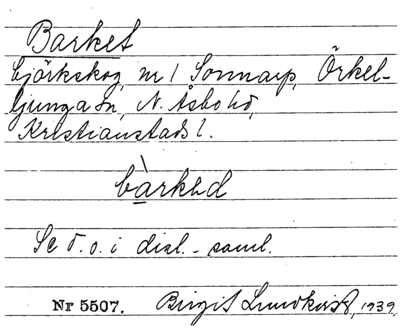 Barket
björkskog, nr 1 Sonnarp, Örkel-
ljunga sn, N. Åsbo hd,
Kristianstads l.
bàrkəd
Se d. o. i dial.-saml.
Nr 5507. Birgit Lundkvist, 1939.